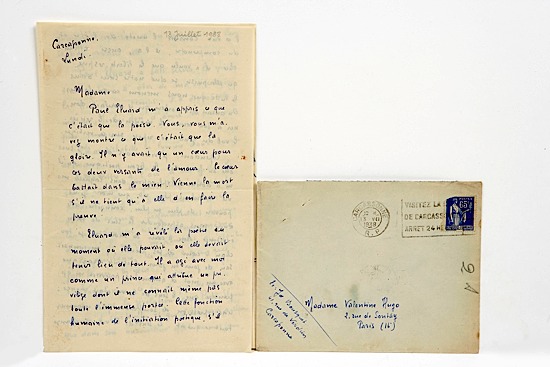 13 juillet 1938
Carcassonne,
Lundi.
Madame,
Paul Eluard m'a appris ce que
c'était que la poésie. Vous, vous m'a-
vez montré ce que c'était que la
gloire. Il n'y avait qu'un cœur pour
ces deux versants de l'amour. le cœur
battait dans le mien. Vienne la mort
s'il ne tient qu'à elle d'en faire la
preuve.
Eluard m'a révélé la poésie au
moment où elle pouvait, où elle devait
tenir lieu de tout. Il a agi avec moi
comme un prince qui attribue un pri-
vilège dont il ne connait même pas
toute l'immense portée. Cette fonction
humaine de l'initiation poétique, s'il
CARCASSONNE
1938
VISITEZ LA
DE CARCASS
ARRET 24 H
POSTES
Madame Valentine Hugo
2, rue de
Paris (16)
Bousquet
rue de Verdun
Carcassonne